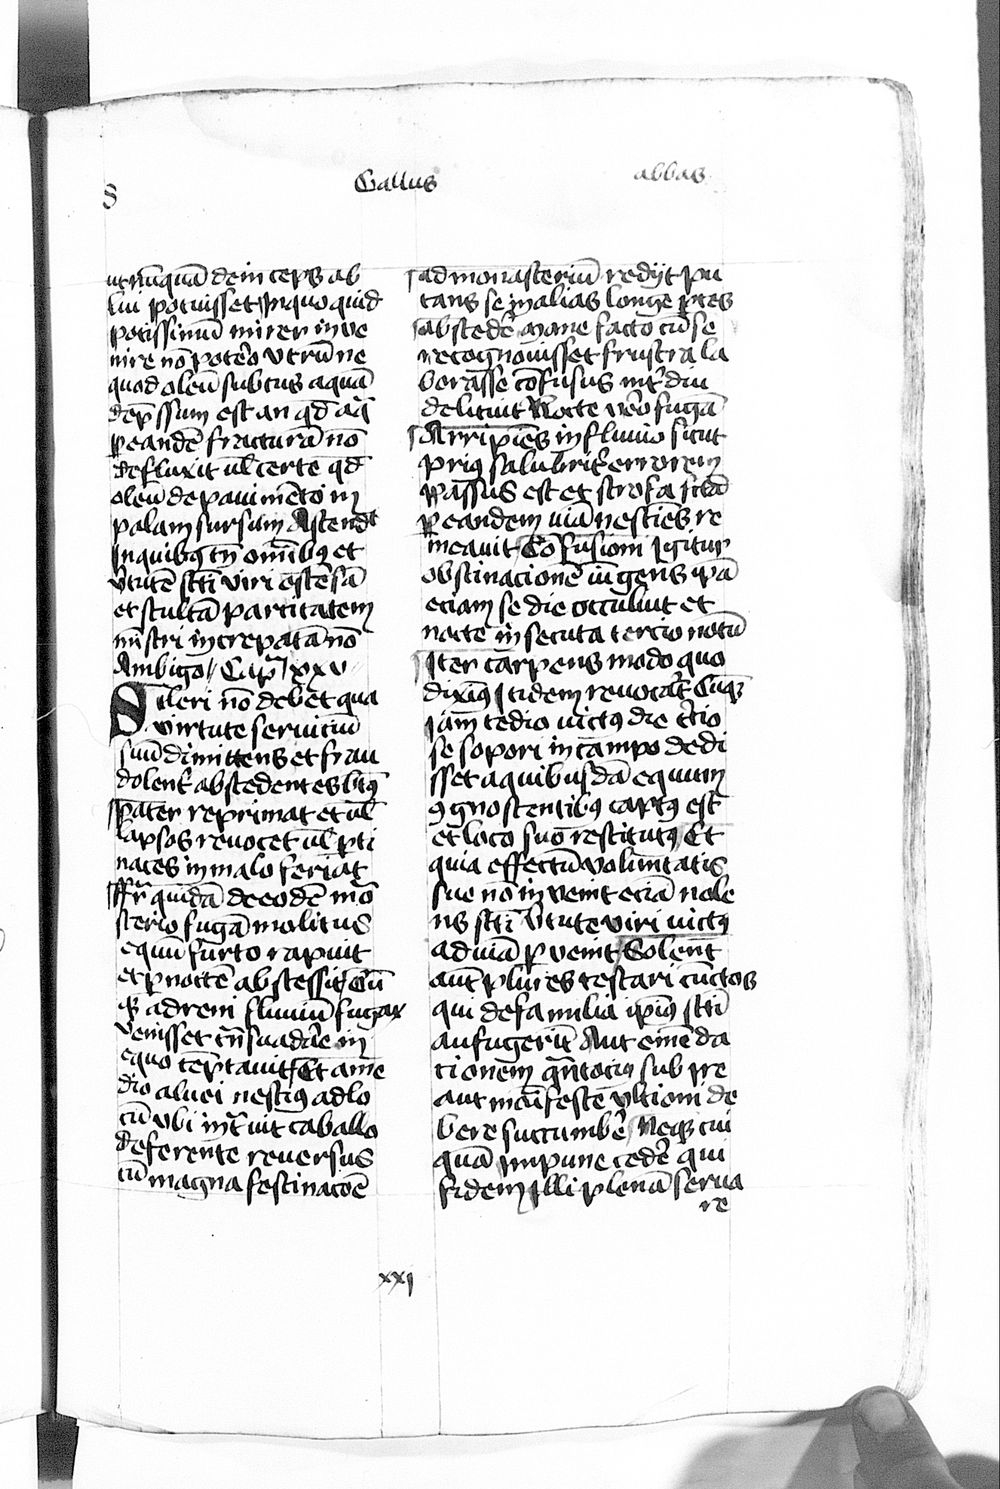 S Gallus abbas
utrūquā deinceps ab
lui potuisset Inquo quid
potissimū mirer inve
nire nō potēo vtrū ne
quod oleū subtus aquā
dep̄ssum est an qd̄ aq̄
peandē fracturā nō
defluxit ul̄ certe qd̄
oleū depavimēto in
palam sursum Ascendt̄
Inquibꝫ tn̄ omībꝫ et
v̄tutē sc̄ti viri ostēsā
et stultā parcitatem
mīstri increpatā nō
Ambigo // Cap̄ xxv
Sileri nō debet qua
virtute serviciū
suū dimittens et frau
dolent̄ abscedentes btūs
pater reprimat et ul̄
lapsos revocet ul̄ p̄ti
naces in malo feriat
ffr̄ quidā de eodē mōa
sterio fugā molitus
equū furto rapuit
et p noctē abscessit Cū
qꝫ ad reni fluviū fugax
venisset tn̄suadāe in
equo tēptavit Et ame
dio alvei nescius adlo
cū vbi intv̄it caballo
deferente reversus
cū magna festinacōe
ad monasteriū redijt pu
tans se in alias longe ptes
abscedē mane facto cū se
recognovisset frustra la
borasse cōfusus int̄diu
delituit Nocte vēo fugā
Arripiēs in fluvio sicut
prius salubrit̄ errorem
passus est et strofa fc̄ā
peandem viā nesciēs re
meavit Cōfusioni igitur
obstinacionē iūgens ip̄ā
eciam se die occuluit et
nocte in secuta tercio notū
Iter carpens modo quo
diximꝰ Itidem revocat̄ Cūqꝫ
iam tedio victꝰ die t̄cio
se sopori in campo dedi
sset aquibusdā equum
ꝯgnoscentibꝫ captꝰ est
et loco suo restitutꝰ Et
quia effectū volūtatis
sue nō invenit eciā nole
ns sc̄ti v̄tute viri victꝰ
ad viā pvenit Solent
aūt plures testari cūctos
qui de familia ipiꝰ sc̄ti
aufugerīt Aut emēda
tionem qn̄tociꝰ subire
aut manifeste vltioni de
bere succumbē Neqꝫ cui
quā impune cedē qui
fidem illi plenā serva
re
xxi